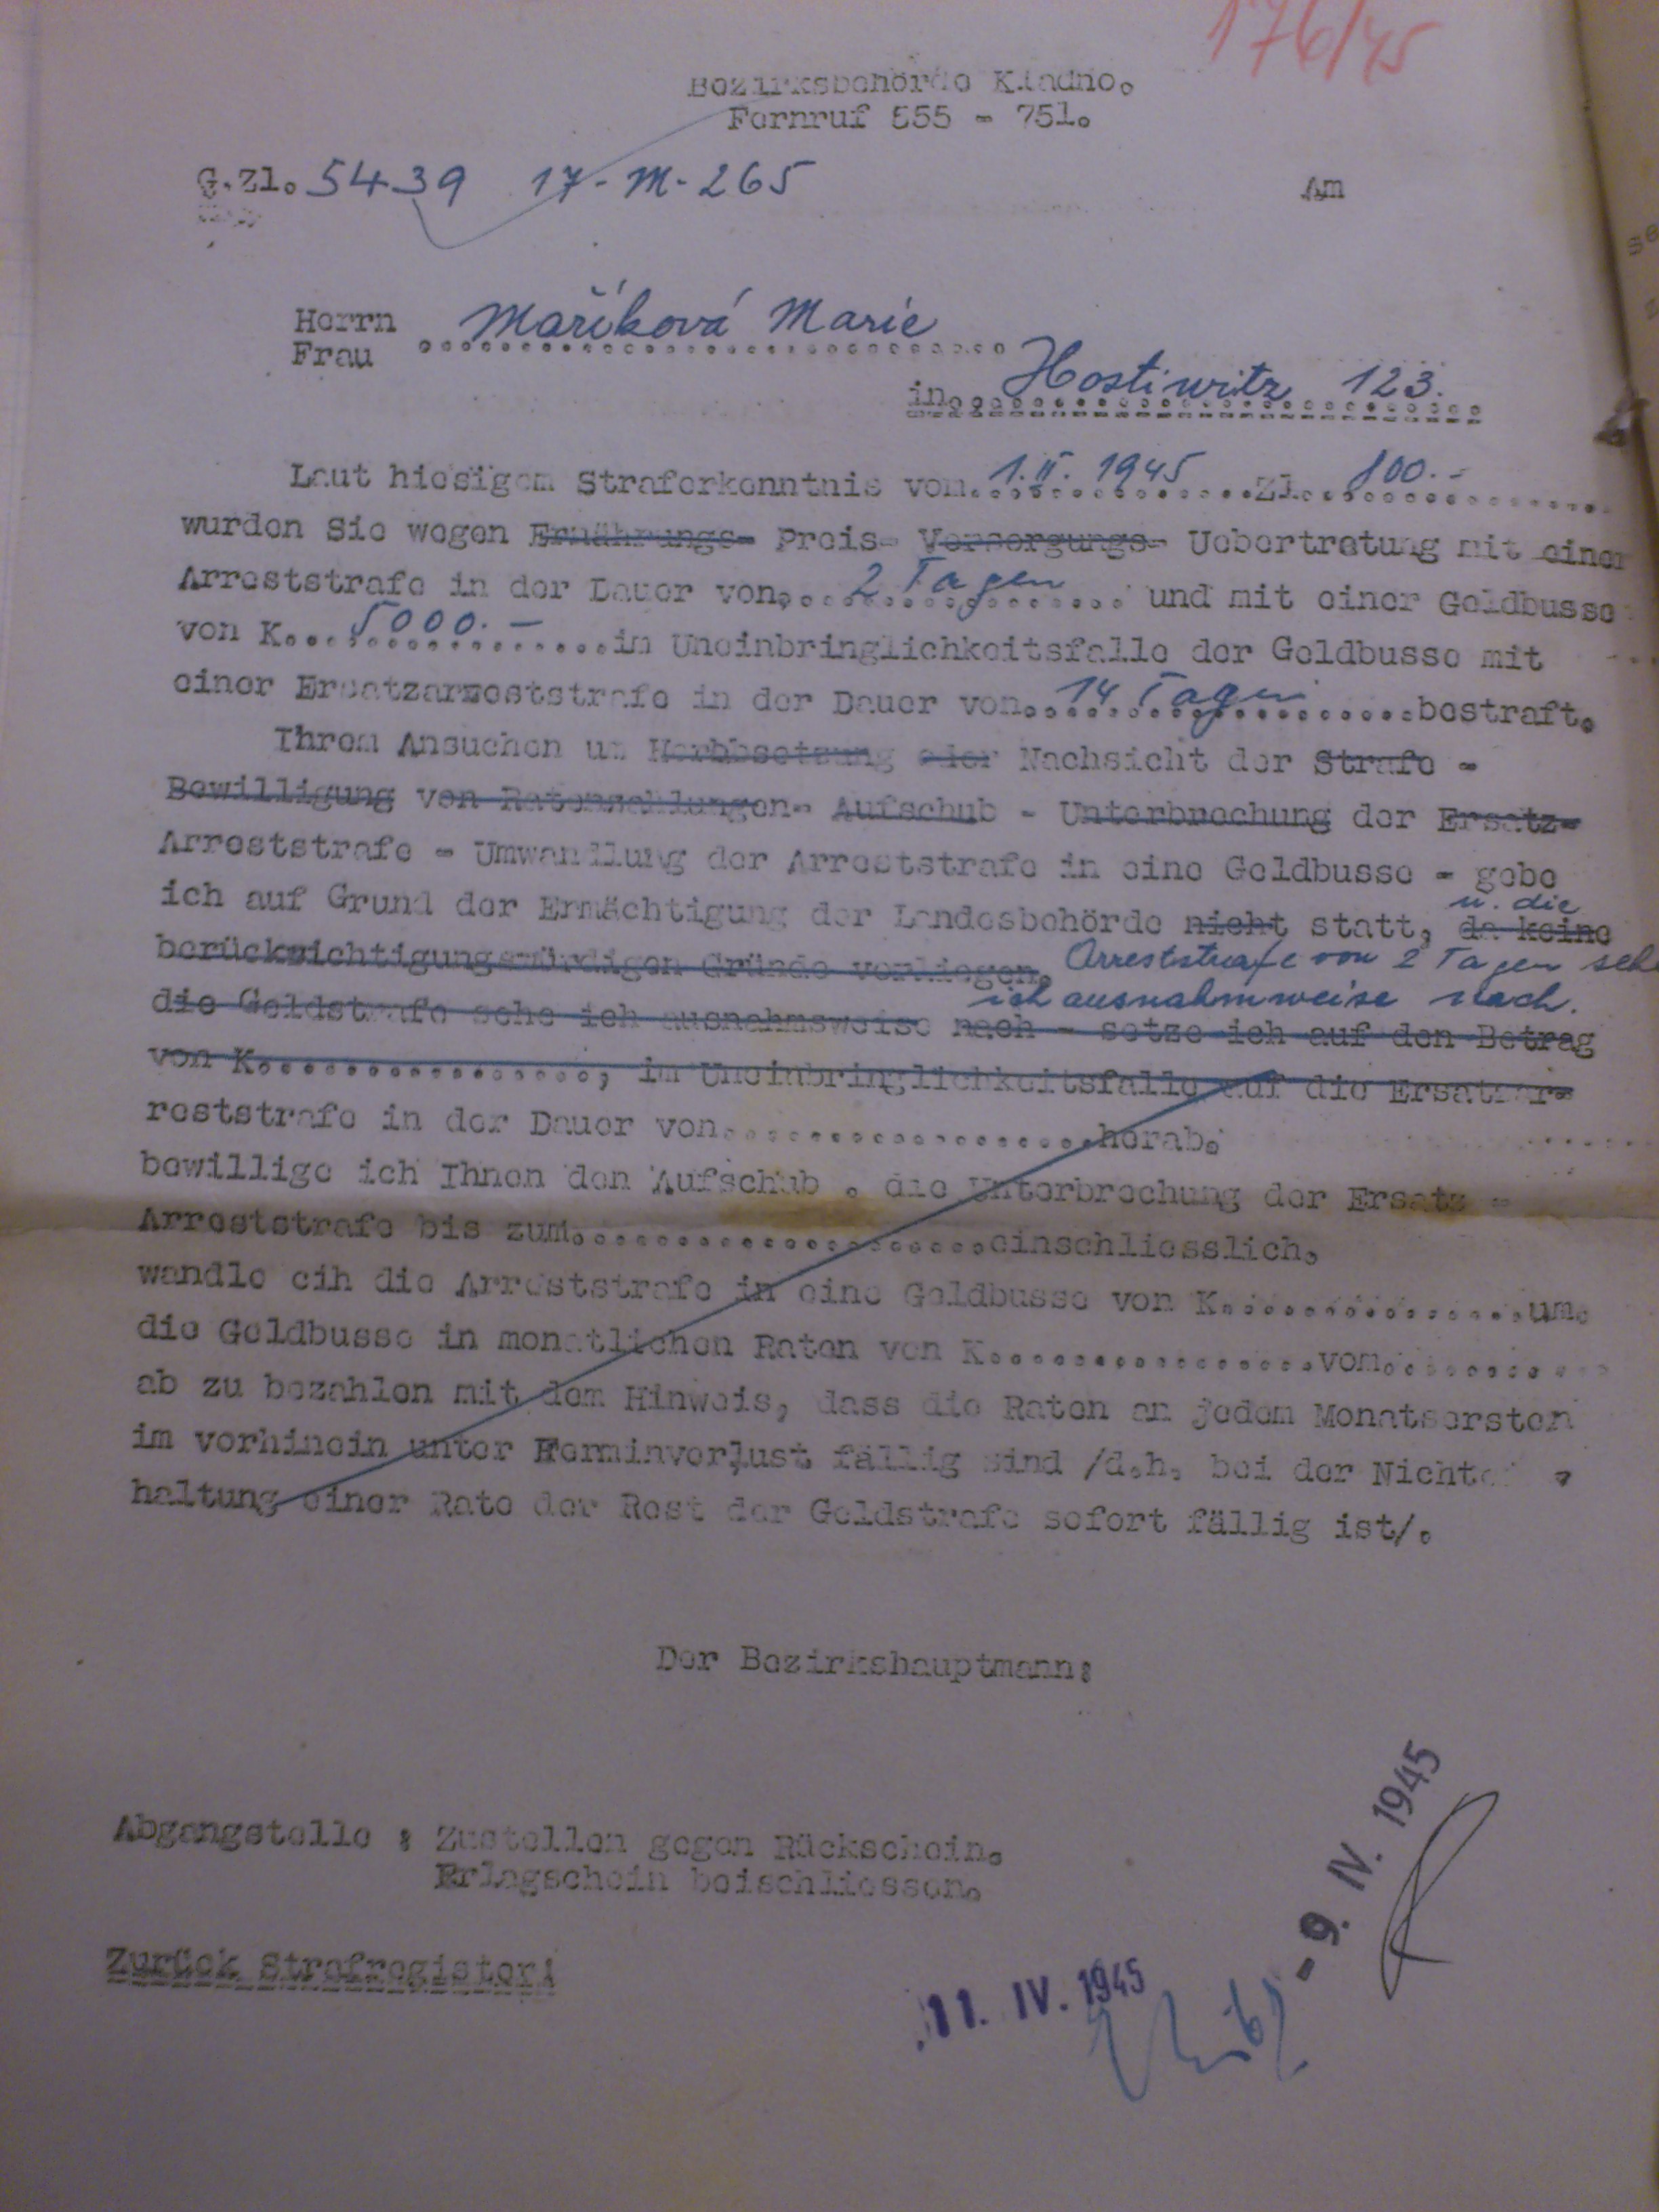 176/45
Bezirksbehörde Kladno.
Fernruf 555 - 751.
G.Zl. 5439 17-M-265 Am
Herrn
Frau Maříková Marie
in Hostiwitz 123.
Laut hiesigem Straferkenntnis vom 1.II. 1945 Zl. 100.-
wurden Sie wegen Ernährungs- Preis- Versorgungs- Uebertretung mit einer
Arreststrafe in der Dauer von 2 Tagen und mit einer Geldbusse
von K 5000.- im Uneinbringlichkeitsfalle der Geldbusse mit
einer Ersatzarreststrafe in der Dauer von 14 Tagen bestraft.
Ihrem Ansuchen um Herbbsetzung oder Nachsicht der Strafe -
Bewilligung von Ratenzahlungen- Aufschub - Unterbrechung der Ersatz-
Arreststrafe - Umwandlung der Arreststrafe in eine Geldbusse - gebe
ich auf Grund der Ermächtigung der Landesbehörde nicht statt, da keine
u. die
berücksichtigungswürdigen Gründe vorliegen. Arreststrafe von 2 Tagen
ich ausnahmweise nach.
die Geldstrafe sehe ich ausnahmsweise nach - setze ich auf den Betrag
von K................, im Uneinbringlichkeitsfalle auf die Ersatzar-
reststrafe in der Dauer von...................herab.
bewillige ich Ihnen den Aufschub . die Unterbrechung der Ersatz -
Arreststrafe bis zum....................einschliesslich.
wandle cih die Arreststrafe in eine Geldbusse von K...............um.
die Geldbusse in monatlichen Raten von K................vom..........
ab zu bezahlen mit dem Hinweis, dass die Raten an jedem Monatsersten
im vorhinein unter Terminverlust fällig sind /d.h. bei der Nichte
haltung einer Rate der Rest der Geldstrafe sofort fällig ist/.
Der Bezirkshauptmann:
Abgangstelle : Zustellen gegen Rückschein.
Erlagschein beischliessen.
Zurück Strafregister!
- 9. IV. 1945
11. IV. 1945